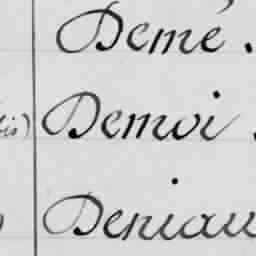 Demé.
is) Demoi
Deniau